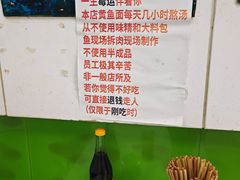 一生毒运伴着你
本店黄鱼面每天几小时熬汤
从不使用味精和大料包
鱼现场拆肉现场制作
不使用半成品
员工极其辛苦
非一般店所及
若你觉得不好吃
可直接退钱走人
(仅限于刚吃时)